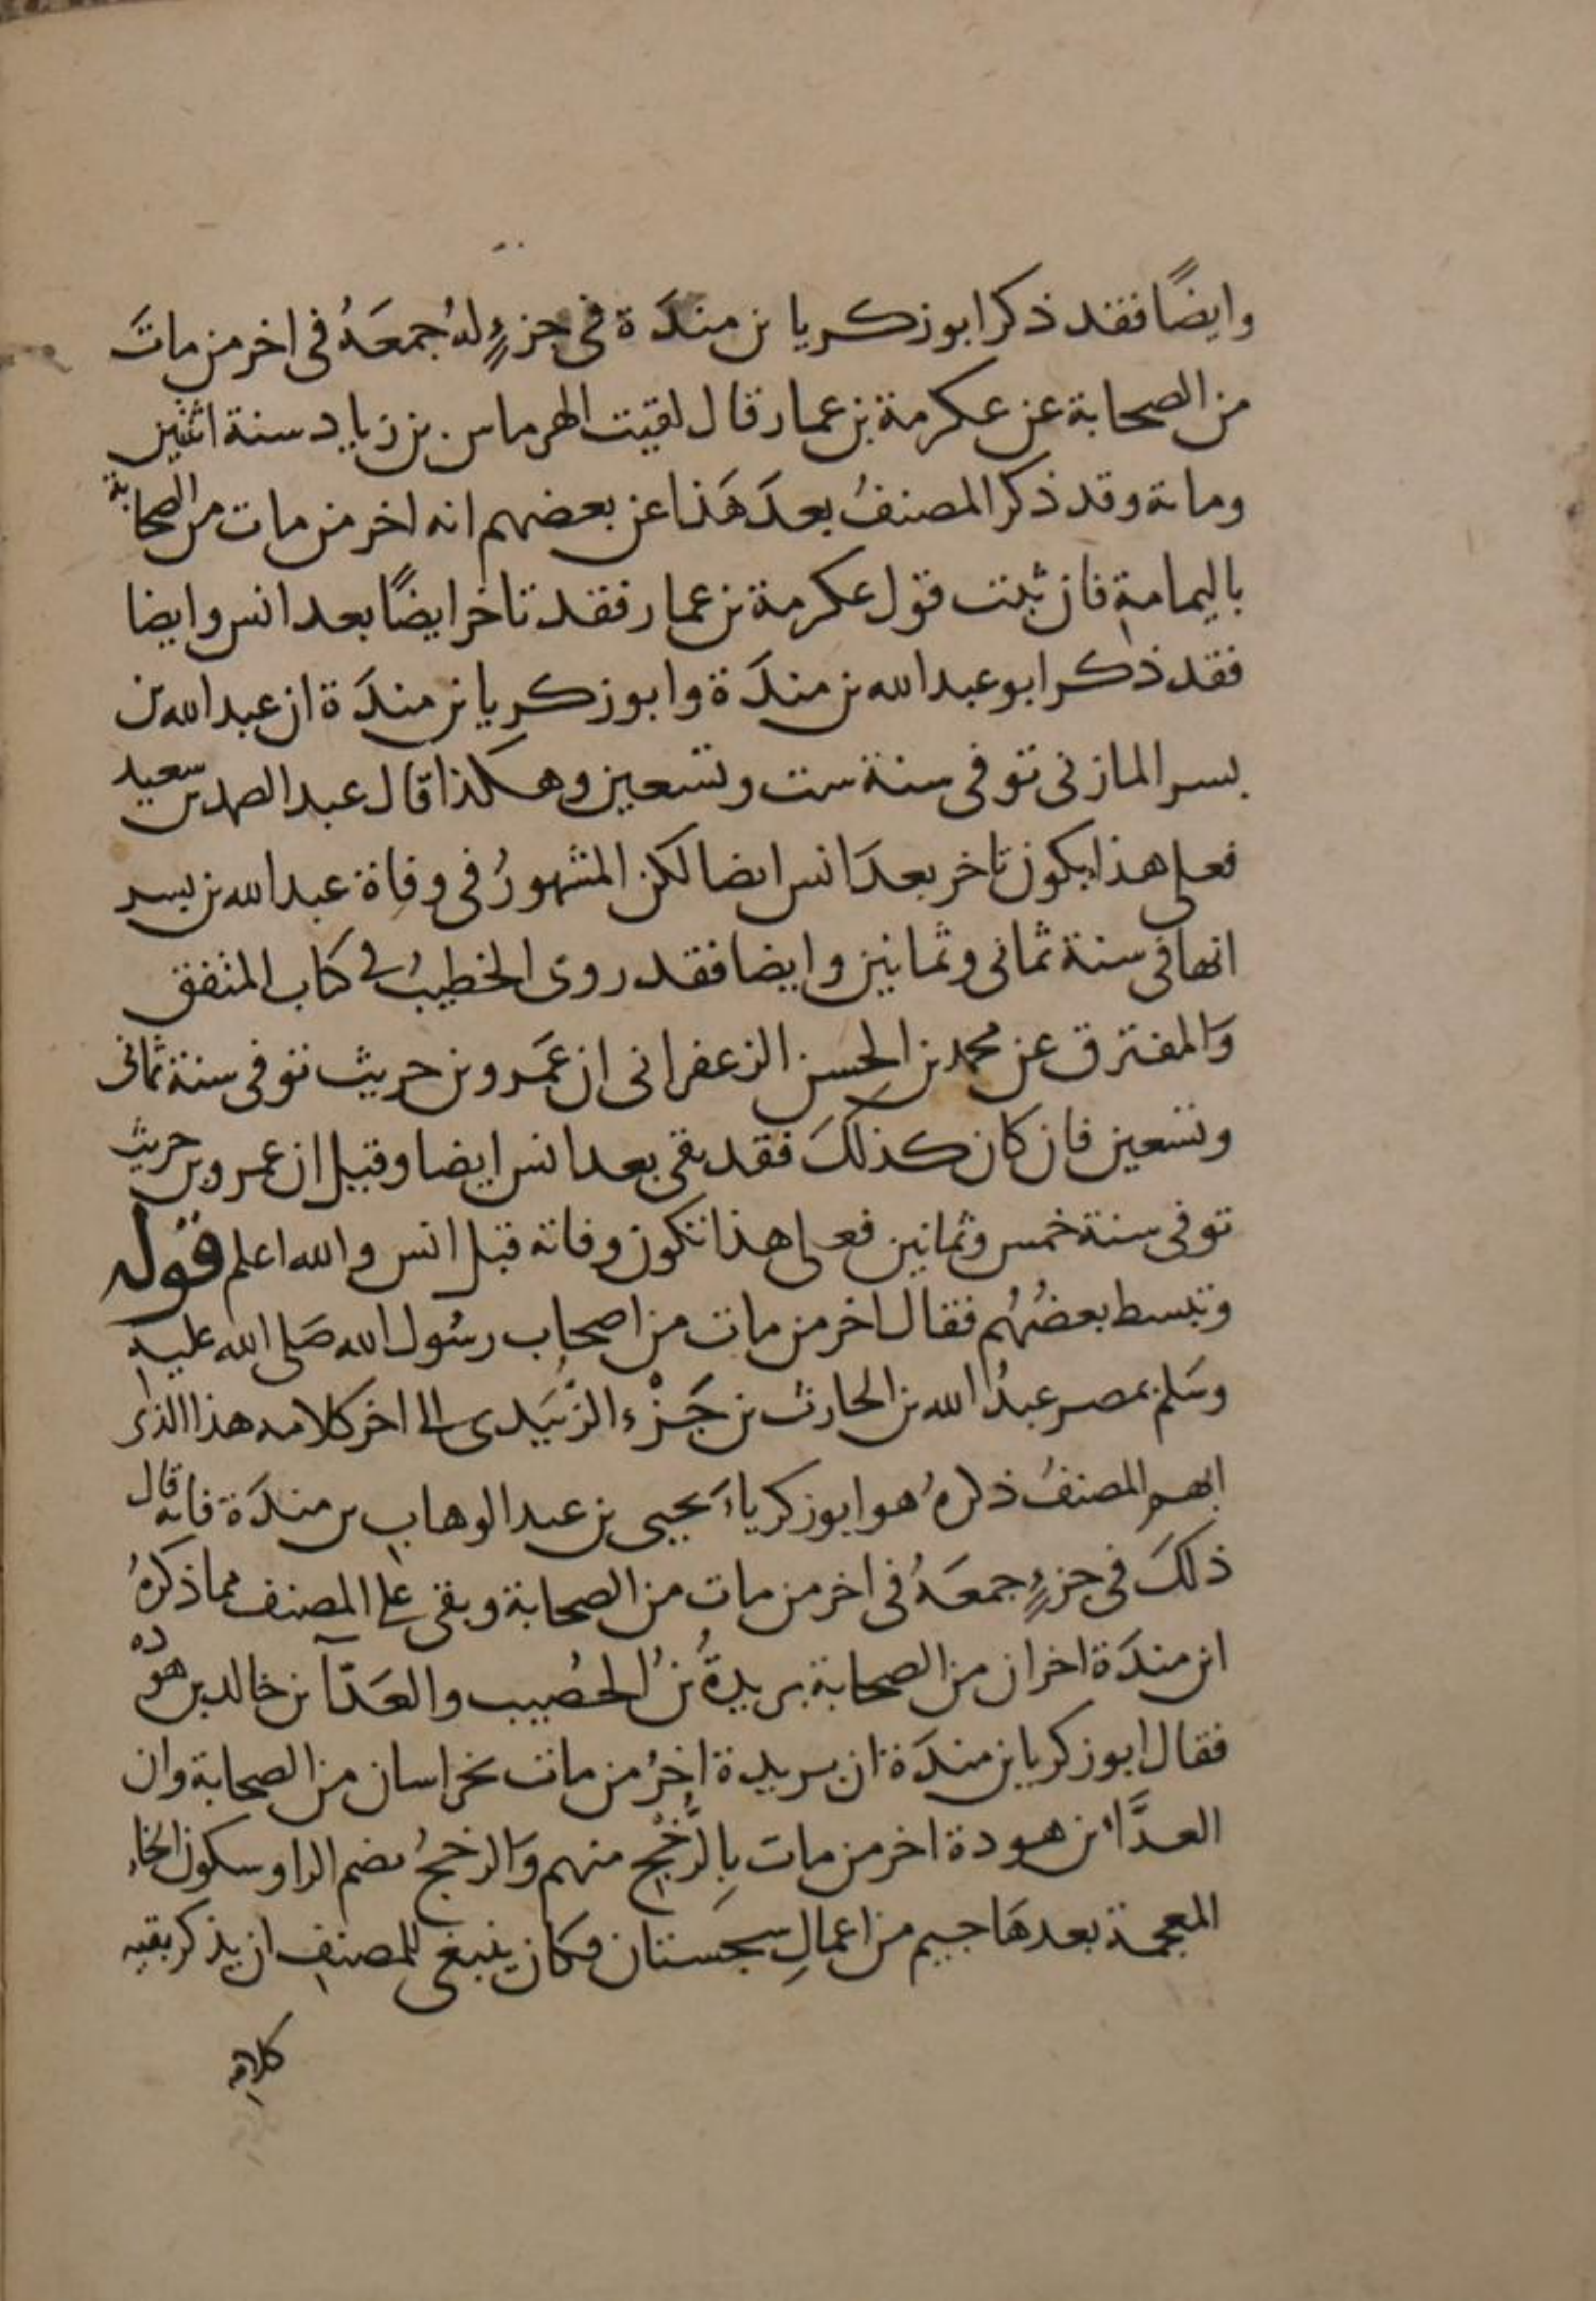 وايضًا فقد ذكر ابو زكريا بن مندَة في جزءٍ لهُ جمعَهُ في اخر من ماتَ
من الصحابة عن عكرمة بن عمار قال لقيت الهرماس بن زياد سنة اثنين
وماىة وقد ذكر المصنفُ بعدَ هَذا عن بعضهم انه اخر من مات من الصحابة
باليمامةِ فان ثبت قول عكرمة بن عمار فقد تاخر ايضًا بعد انس وايضا
فقد ذكر ابو عبد الله بن مندَة وابو زكريا بن مندَة ان عبد الله بن
بسر المازني توفي سنة ست وتسعين وهكذا قال عبد الصمد بن سعيد
فعلى هذا يكون تاخر بعدَ انس ايضا لكن المشهورُ في وفاة عبد الله بن بسر
انها في سنة ثماني وثمانين وايضا فقد روى الخطيبُ في كتاب المتفق
وَالمفترق عن محمد بن الحسن الزعفراني ان عَمرو بن حريث توفي سنة ثماني
وتسعين فان كان كذلكَ فقد بقي بعد انس ايضا وقيل ان عمرو بن حريث
توفي سنة خمس وثمانين فعلى هذا تكون وفاته قبل انس والله اعلم قوله
وتبسط بعضُهُم فقال اخر من مات من اصحاب رسُول الله صَلى الله عليه
وسَلم بمصر عبدُ الله بن الحارث بن جَزْء الزُّبَيدي الى اخر كلامه هذا الذي
ابهم المصنفُ ذكرهُ هو ابو زكرياء يحيى بن عبد الوهاب بن مندَة فانه قال
ذلكَ في جزءٍ جمعَهُ في اخر من مات من الصحابة وبقي على المصنف مما ذكرهُ
ابن مندَة اخران من الصحابة بريدةُ بنُ الحصُيب والعَدّآ بن خالد بن هوده
فقال ابو زكريا بن مندَة ان بريدة اخِرُ من مات بخراسان من الصحابة وان
العدَّاء بن هودة اخر من مات بِالرُّخْجِ منهم وَالرخجُ بضم الرا وسكون الخاء
المعجمة بعدهَا جيم من اعمالِ سجستان فكان ينبغي للمصنفِ ان يذكر بقيه
كلامه